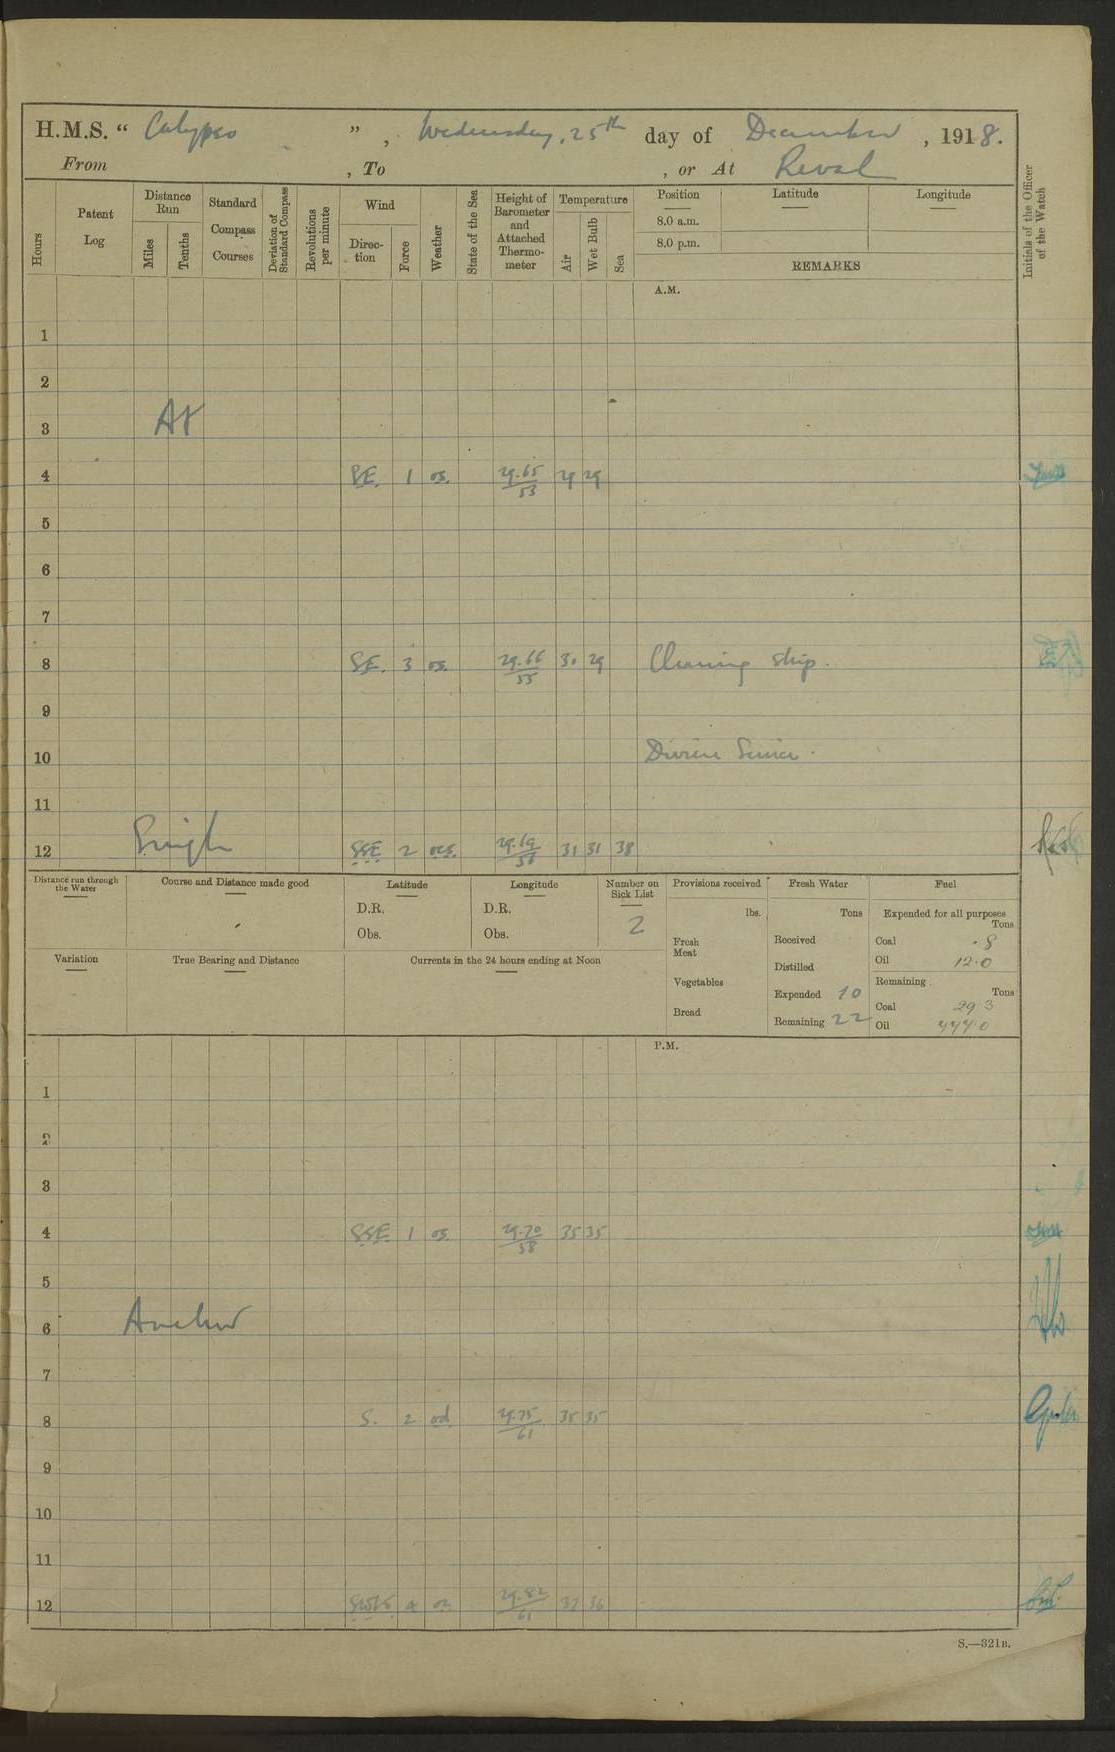 H.M.S. “ Calypso ” , Wednesday, 25th day of December , 1918.
From , To , or At Reval
Hours
Patent Log
Distance Run
Miles
Tenths
Standard Compass Courses
Deviation of Standard Compass
Revolutions per minute
Wind
Direction
Force
Weather
State of the Sea
Height of Barometer and Attached Thermometer
Temperature
Air
Wet Bulb
Sea
Position
8.0 a.m.
8.0 p.m.
Latitude
Longitude
REMARKS
Initials of the Officer of the Watch
A.M.
1
2
3 At
4 SE. 1 os. 29.65/53 29 29
5
6
7
8 SE. 3 os. 29.66/55 30 29 Cleaning ship.
9
10 Divine Service.
11
12 Single SSE 2 ocs. 29.69/56 31 31 38
Distance run through the Water
Course and Distance made good
Latitude
D.R.
Obs.
Longitude
D.R.
Obs.
Number on Sick List
2
Provisions received
lbs.
Fresh Meat
Vegetables
Bread
Fresh Water
Tons
Received
Distilled
Expended 10
Remaining 22
Fuel
Expended for all purposes
Tons
Coal .8
Oil 12.0
Remaining
Tons
Coal 29 3
Oil 444.0
Variation
True Bearing and Distance
Currents in the 24 hours ending at Noon
P.M.
1
2
3
4 SSE 1 os. 29.70/58 35 35
5
6 Anchor
7
8 S. 2 od 29.75/61 35 35
9
10
11
12 4 29.82/61 37 36
S.—321B.